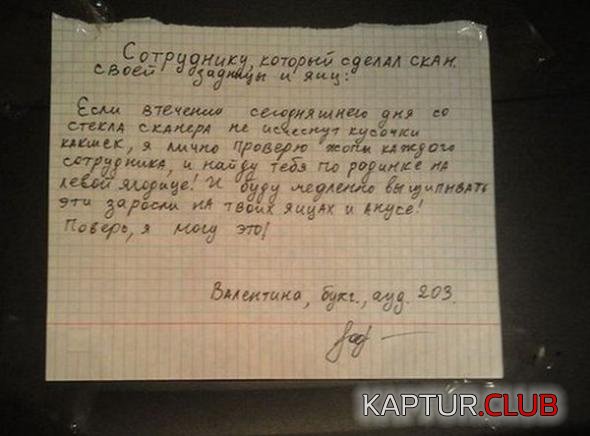 Сотруднику, который сделал скан
своей задницы и яиц:
Если втечении сегодняшнего дня со
стекла сканера не исчеснут кусочки
какшек, я лично проверю жопы каждого
сотрудника, и найду тебя по родинке на
левой ягодице! И буду медленно выщипывать
эти заросли на твоих яицах и анусе!
Поверь, я могу это!
Валентина, бухг., ауд. 203.
KAPTUR.CLUB